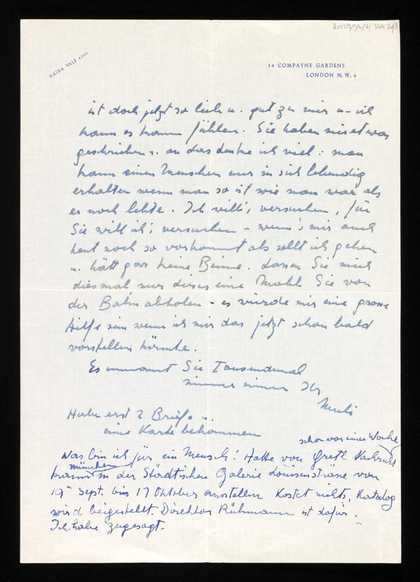 MAIDA VALE
14 COMPAYNE GARDENS
LONDON N.W.6
ist doch jetzt so lieb u. gut zu mir u – ich
kann es kaum fühlen. Sie haben mir etwas
geschrieben u. an das denke ich viel: man
kann einen Menschen nur in sich lebendig
erhalten wenn man so ist wie man war als
er noch lebte. Ich will's versuchen, für
Sie will ich's versuchen – wenn's mir auch
heut noch so vorkommt als sollt ich gehen
u. hätt gar keine Beine. Lassen Sie mich
diesmal nur dieses eine Mahl Sie von
der Bahn abholen – es würde mir eine grosse
Hilfe sein wenn ich mir das jetzt schon bald
vorstellen könnte.
Es umarmt Sie Tausendmal
immer immer Ihr
Mushi
Habe erst 2 Briefe u.
eine Karte bekommen
schon vor einer Woche
Was bin ich für ein Mensch! Hatte von Greth Karbruch
München
kannst in der Städtischen Galerie Louisenstrasse von
15 Sept. bis 17 Oktober ausstellen Kostet nichts, Katalog
wird beigestellt. Direktor Röthmann ist dafür.
Ich habe zugesagt.